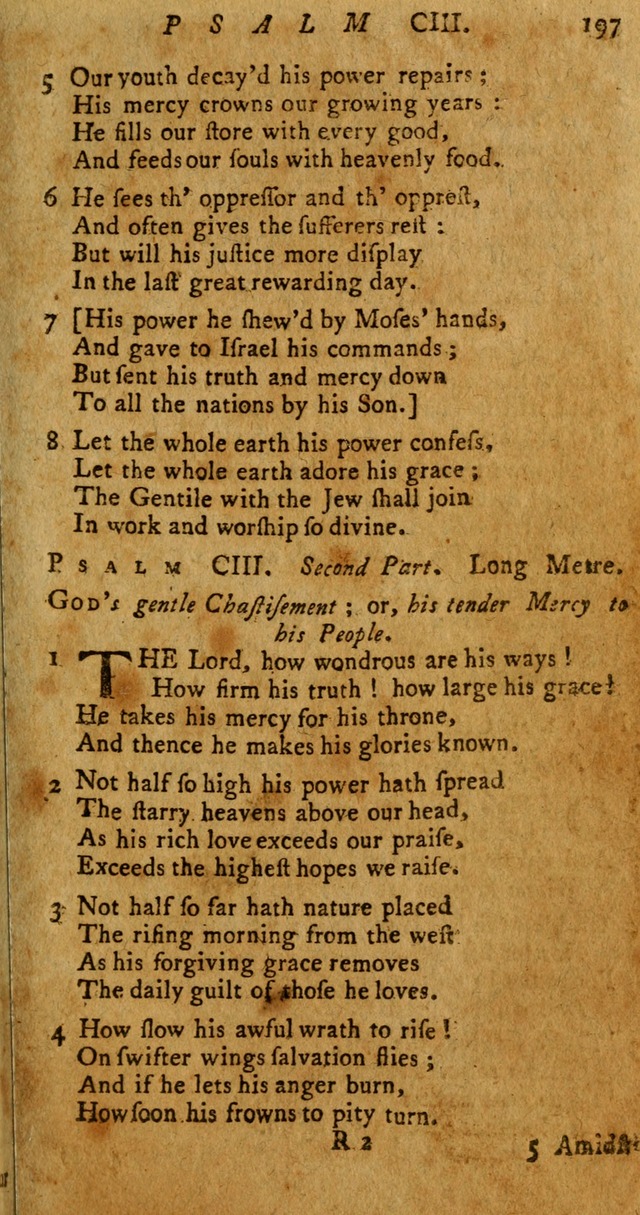 PSALM CIII. 197
5 Our youth decay'd his power repairs ;
His mercy crowns our growing years :
He fills our ſtore with every good,
And feeds our ſouls with heavenly food.
6 He ſees th' oppreſſor and th' oppreſt,
And often gives the ſufferers reſt :
But will his juſtice more diſplay
In the laſt great rewarding day.
7 [His power he ſhew'd by Moſes' hands,
And gave to Iſrael his commands ;
But ſent his truth and mercy down
To all the nations by his Son.]
8 Let the whole earth his power confeſs,
Let the whole earth adore his grace ;
The Gentile with the Jew ſhall join
In work and worſhip ſo divine.
PSALM CIII. Second Part. Long Metre.
GOD's gentle Chaſtiſement ; or, his tender Mercy to
his People.
1 THE Lord, how wondrous are his ways !
How firm his truth ! how large his grace !
He takes his mercy for his throne,
And thence he makes his glories known.
2 Not half ſo high his power hath ſpread
The ſtarry heavens above our head,
As his rich love exceeds our praiſe,
Exceeds the higheſt hopes we raiſe.
3 Not half ſo far hath nature placed
The riſing morning from the weſt
As his forgiving grace removes
The daily guilt of thoſe he loves.
4 How ſlow his awful wrath to riſe !
On ſwifter wings ſalvation flies ;
And if he lets his anger burn,
How ſoon his frowns to pity turn.
R 2 5 Amidſt